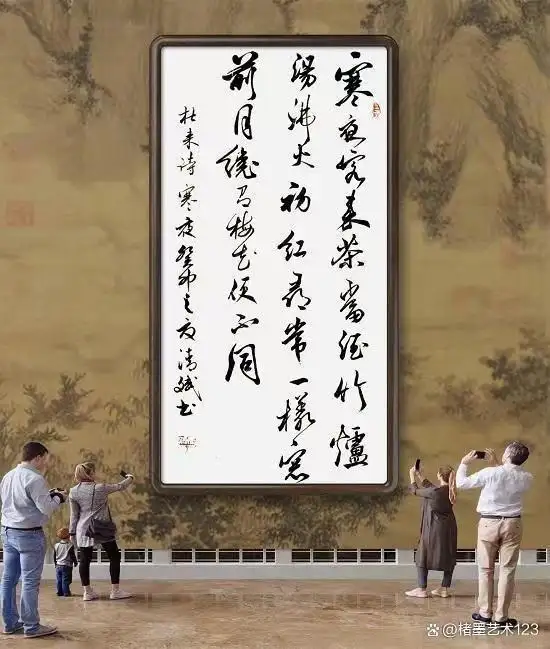 寒夜客来茶當酒竹爐
湯沸火初红尋常一樣窓
前月纔有梅花便不同
杜耒诗寒夜癸卯之夏清斌书
@楮墨艺术123